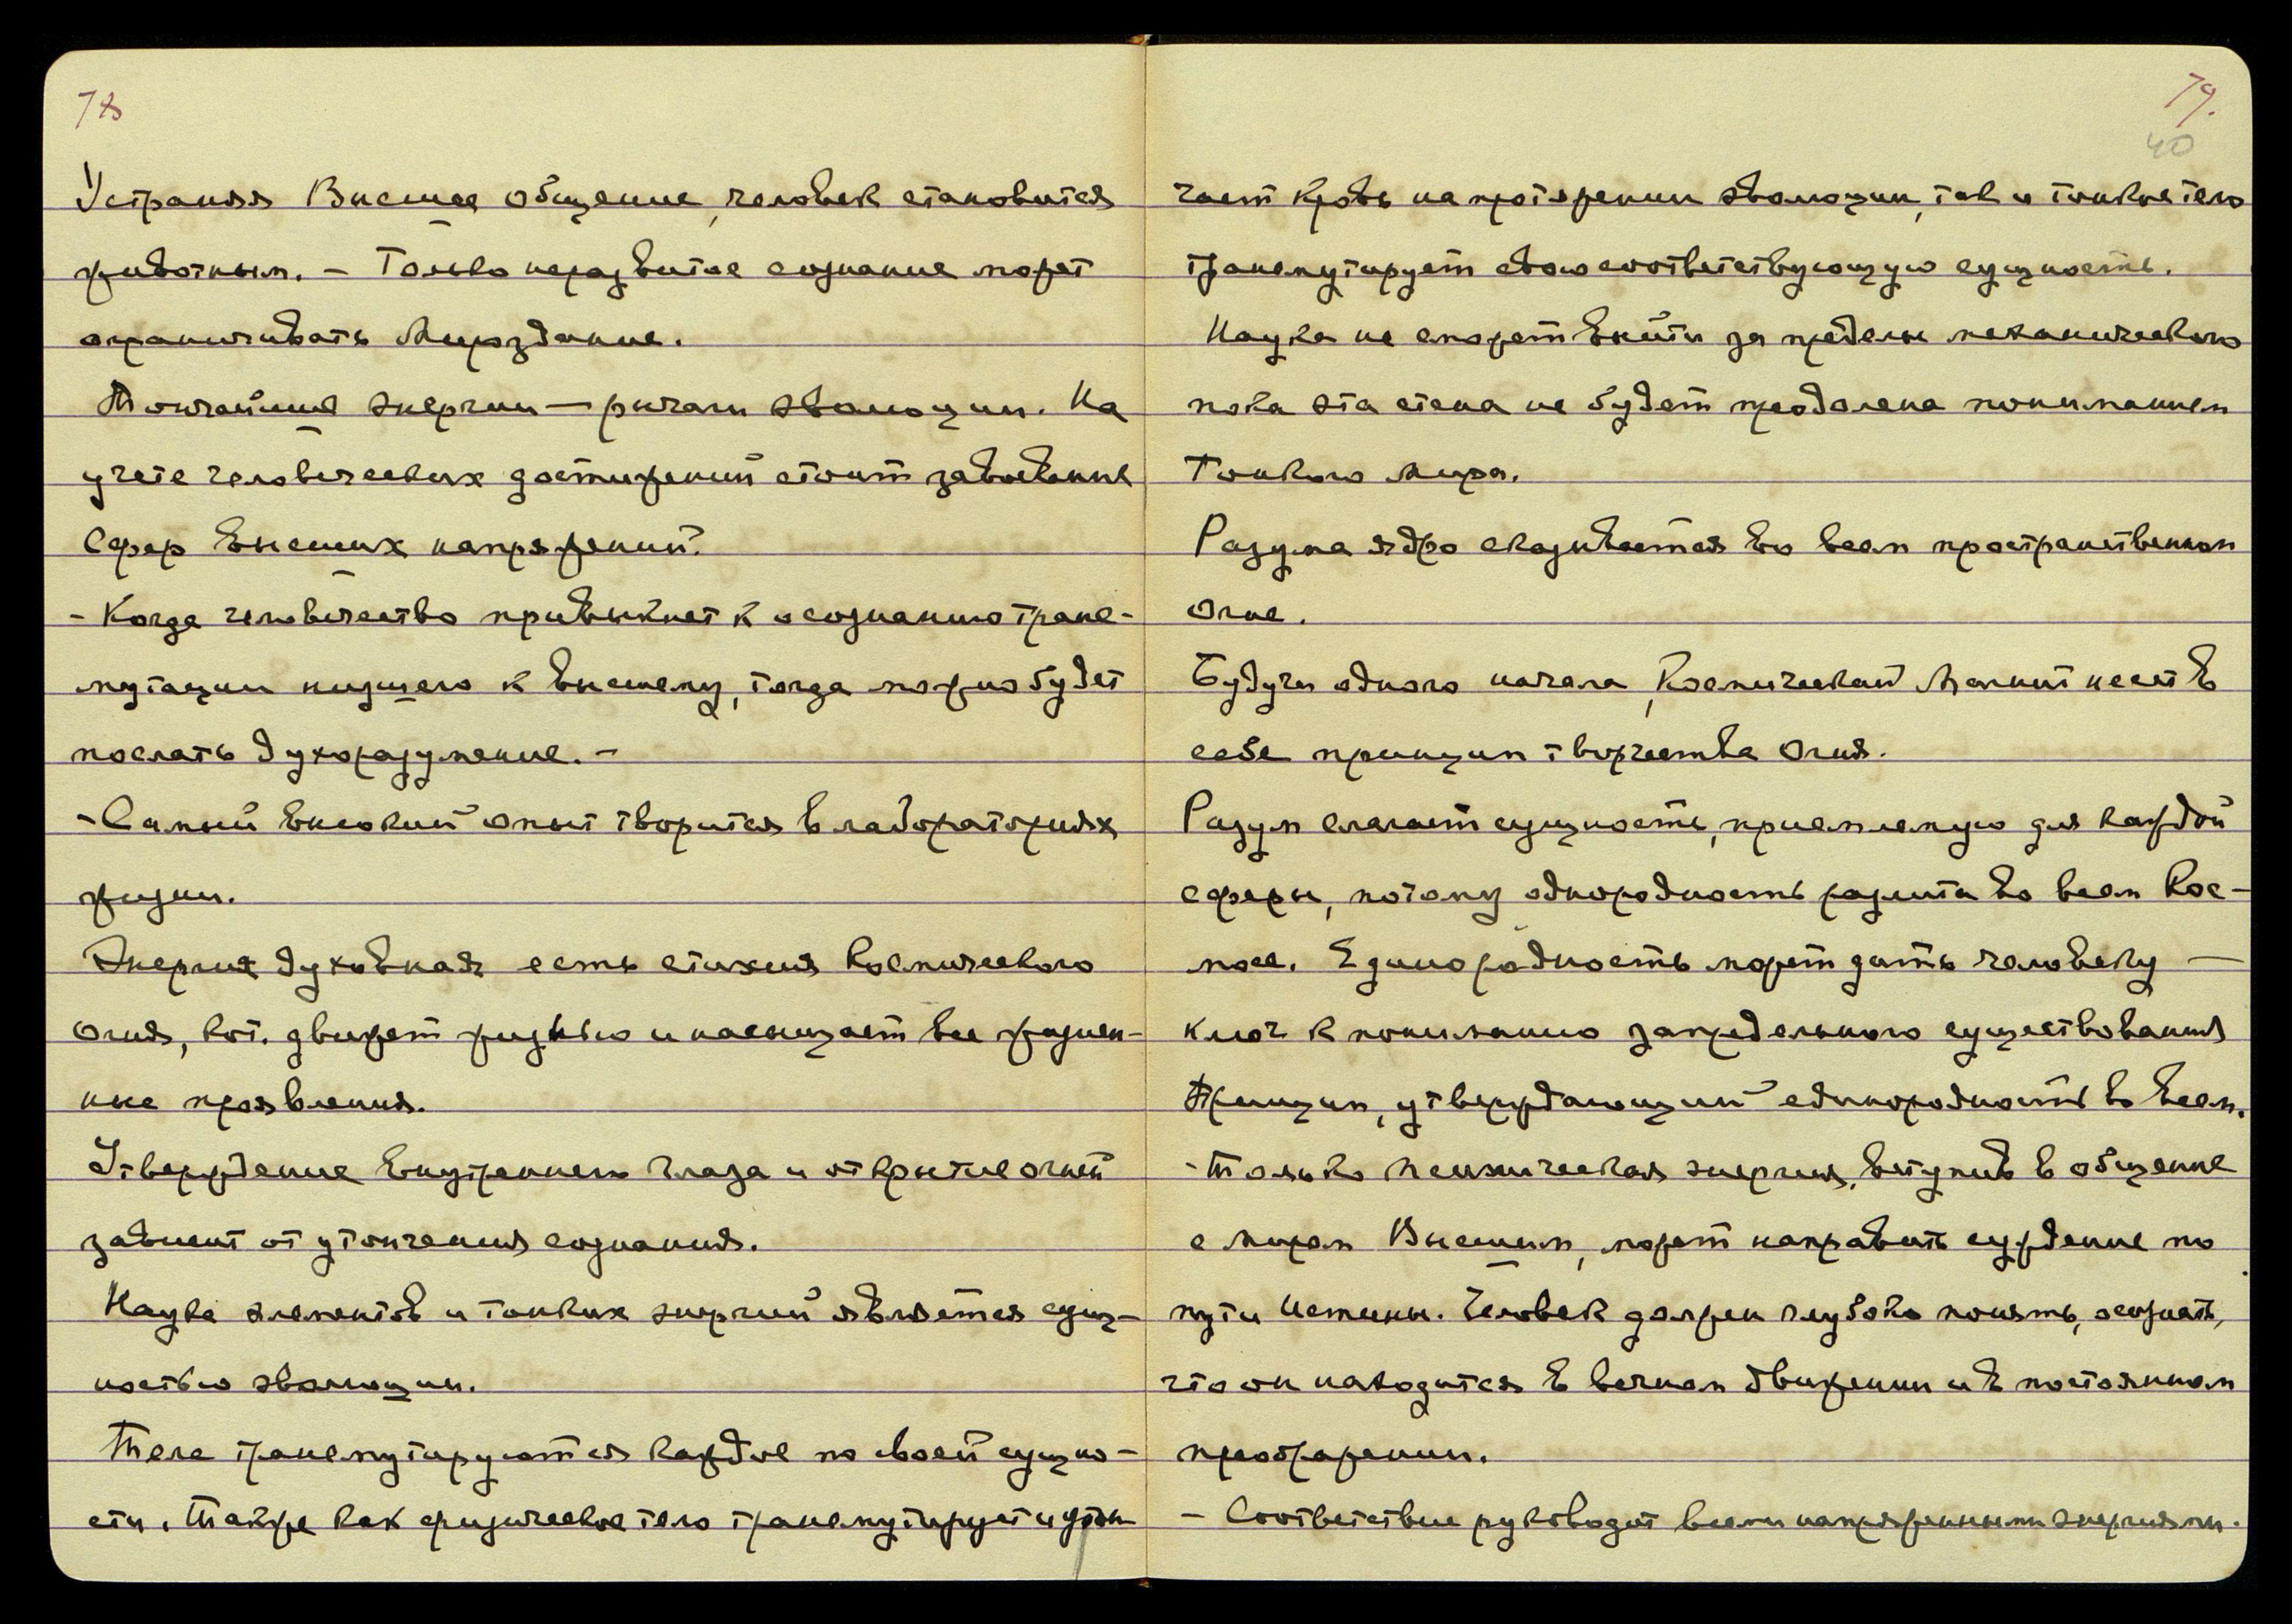 78
Устраняя Высшее общение, человек становится
животным. – Только неразвитое сознание может
ограничивать Мироздание.
Тончайшие энергии – рычаги эволюции. На
учете человеческих достижений стоит завоевание
Сфер высших напряжений.
- Когда человечество привыкнет к осознанию транс-
мутации низшего к высшему, тогда можно будет
послать духоразумение. –
- Самый высокий опыт творится в лабораториях
жизни.
Энергия духовная есть стихия Космического
огня, кот. движет жизнью и насыщает все жизнен-
ные проявления.
Утверждение внутреннего глаза и открытие огней
зависит от утончения сознания.
Наука элементов и тонких энергий является сущ-
ностью эволюции.
Тела трансмутируются каждое по своей сущно-
сти. Также как физическое тело трансмутирует и утон-
79.
40
чает кровь на протяжении эволюции, так и тонкое тело
трансмутирует свою соответствующую сущность.
Наука не сможет выйти за пределы механического
пока эта стена не будет преодолена пониманием
Тонкого Мира.
Разума ядро сказывается во всем пространственном
Огне.
Будучи одного начала, Космический Магнит несет в
себе принцип творчества Огня.
Разум слагает сущность, приемлемую для каждой
сферы, потому однородность разлита во всем Кос-
мосе. Единородность может дать человеку —
ключ к пониманию запредельного существования
Принцип, утверждающий единородность во всем.
- Только психическая энергия, вступив в общение
с миром Высшим, может направить суждение по
пути Истины. Человек должен глубоко понять, осознать,
что он находится в вечном движении и в постоянном
преображении.
– Соответствие руководит всеми напряженными энергиями.